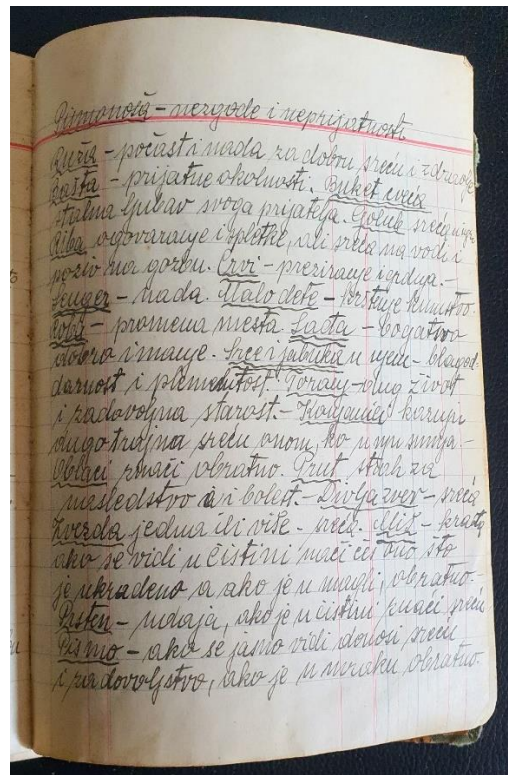 nezgode i neprijatnosti.
Ruža – počast i nada za dobru sreću i zdravlje
Bašta – prijatne okolnosti. Buket cveća
stalna ljubav svoga prijatelja. Golub sreća u
Riba ogovaranje i spletke, ali sreća na vodi i
poziv na gozbu. Crvi – preziranje i grdnja. –
– nada. Malo dete –
– promena mesta. Lađa – bogatstvo
dobro imanje. – Srce i jabuka u njem – blagod-
darnost i plemenitost. Toranj – dug život
i zadovoljna starost. – Konjanica
dugotrajnu sreću onom, ko u nju sumnja –
Oblaci znači obratno. Prut strah za
nasledstvo a i bolest. – Divlja zver – sreća
Zvezda jedna ili više – sreća. Miš – krađa,
ako se vidi u čistini naći ćeš ono što
je ukradeno a ako je u magli, obratno. –
Prsten – udaja, ako je u čistini znači sreću
Pismo – ako se jasno vidi donosi sreću
i zadovoljstvo, ako je u mraku obratno.